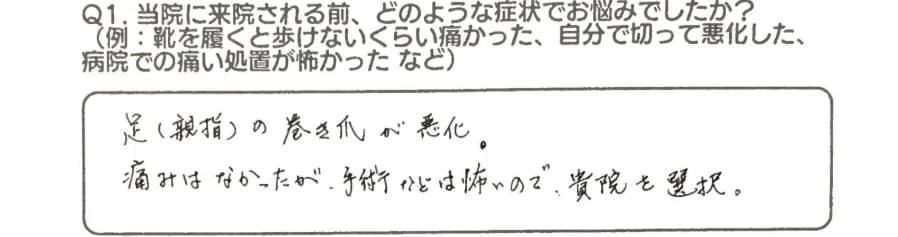 Q1. 当院に来院される前、どのような症状でお悩みでしたか？
（例：靴を履くと歩けないくらい痛かった、自分で切って悪化した、
病院での痛い処置が怖かった など）
足（親指）の巻き爪が悪化。
痛みはなかったが、手術などは怖いので、貴院を選択。